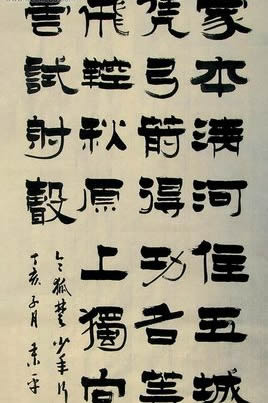 家本清河住五城
凭弓箭得功名等
飛鞚秋原上獨向
雲試射聲
令狐楚少年行
丁亥子月